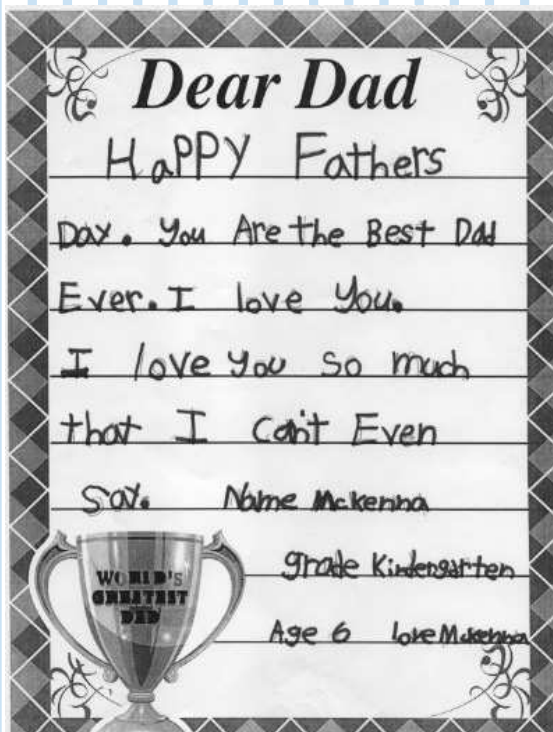 Dear Dad
HaPPY Fathers
Day. You Are the Best Dad
Ever. I love You.
I love you so much
that I can't Even
Say. Name Mckenna
grade Kindergarten
Age 6 love Mckenna
WORLD'S
GREATEST
DAD